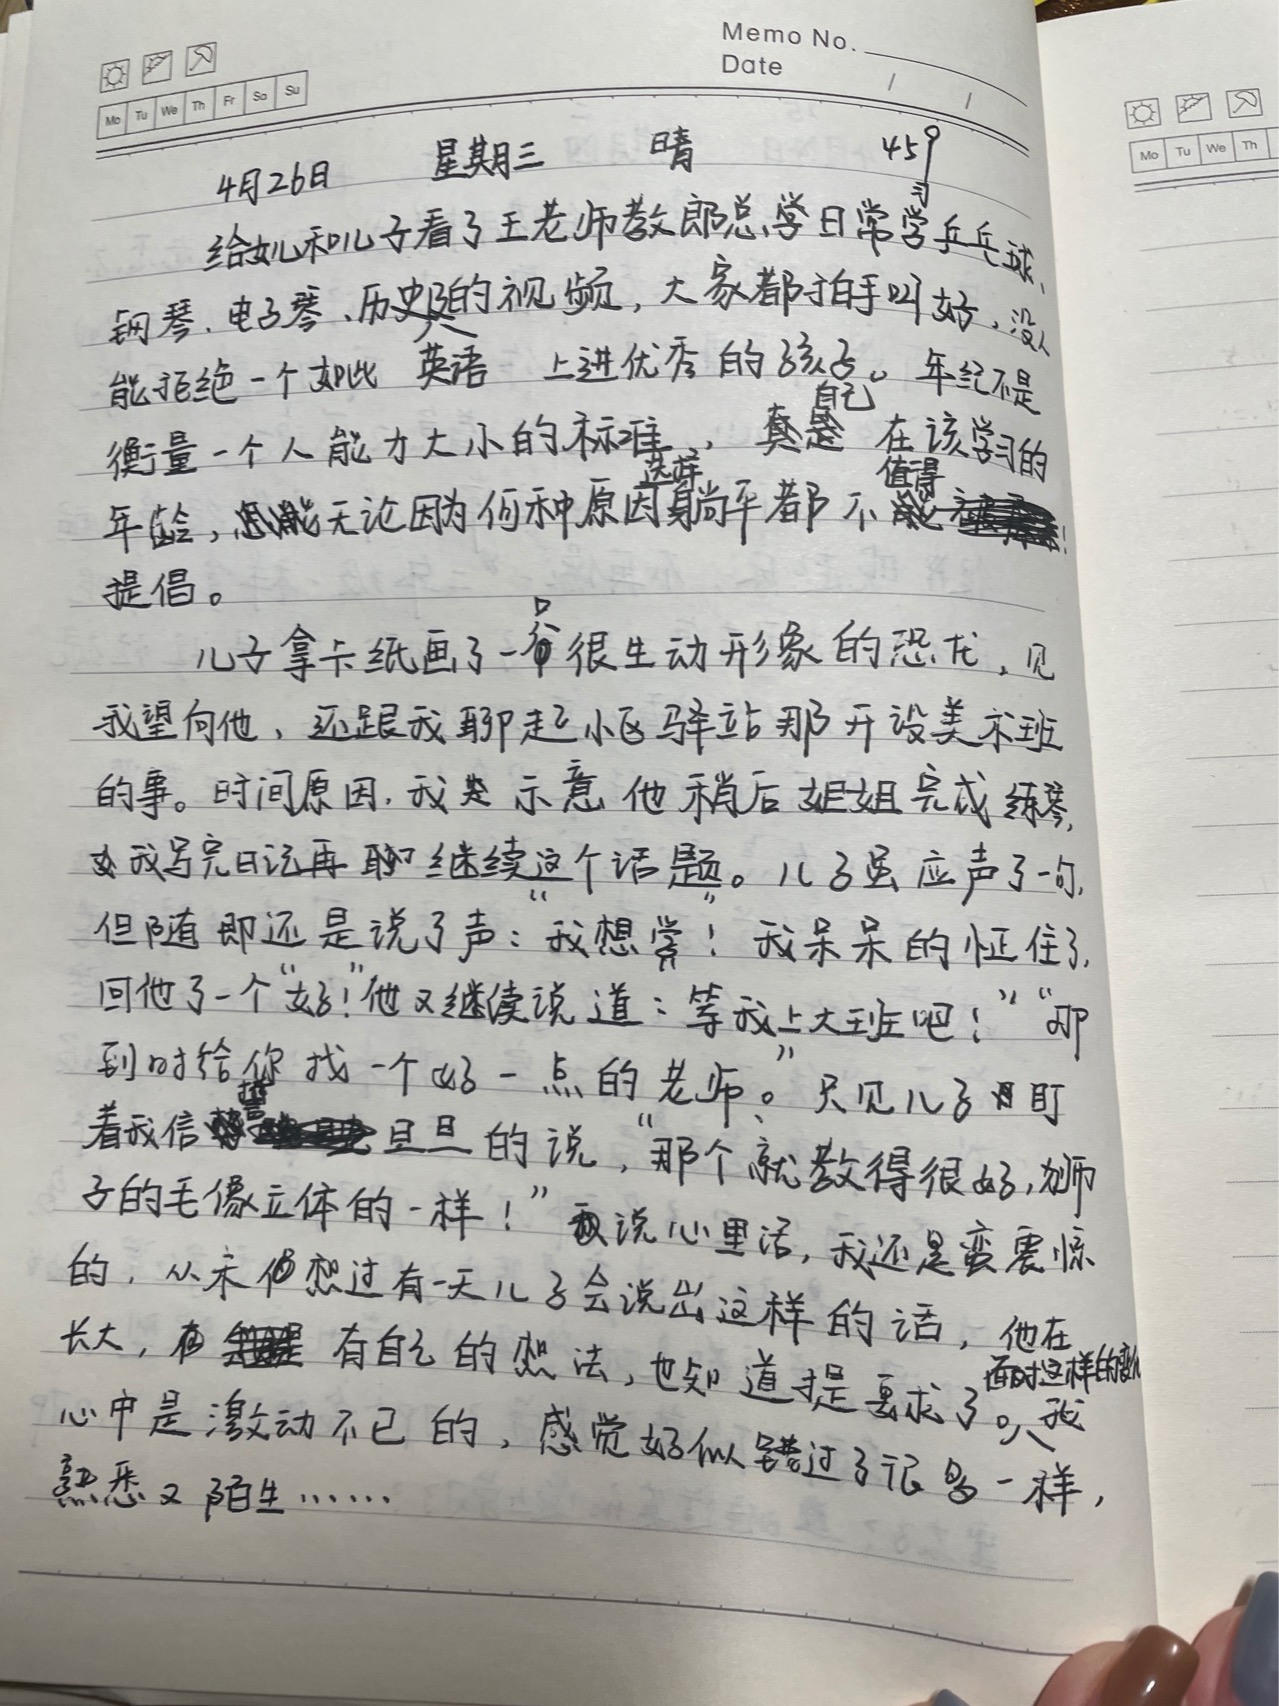 Memo No.
Date / /
Mo Tu We Th Fr Sa Su
Mo Tu We Th
4月26日 星期三 晴 45
习
给女儿和儿子看了王老师教郎总学日常学乒乓球、
钢琴、电子琴、历史的视频，大家都拍手叫好，没人
能拒绝一个如此 英语 上进优秀的孩子。年纪不是
自己
衡量一个人能力大小的标准，真是 在该学习的
选择 值得
年龄，无论因为何种原因躺平都不
提倡。
儿子拿卡纸画了一份很生动形象的恐龙，见
我望向他，还跟我聊起小区驿站那开设美术班
的事。时间原因，我 示意他稍后姐姐完成练琴，
我写完日记再聊继续这个话题。儿子虽应声了一句，
但随即还是说了声：“我想学”！我呆呆的怔住了，
回他了一个“好！”他又继续说道：等我上大班吧！”“那
到时给你找一个好一点的老师。”只见儿子 盯
誓
着我信 旦旦的说，“那个就教得很好，狮
子的毛像立体的一样！”说心里话，我还是蛮震惊
的，从未 想过有一天儿子会说出这样的话，他在
长大，有自己的想法，也知道提要求了。我
面对这样的变化
心中是激动不已的，感觉好似错过了很多一样，
熟悉又陌生……